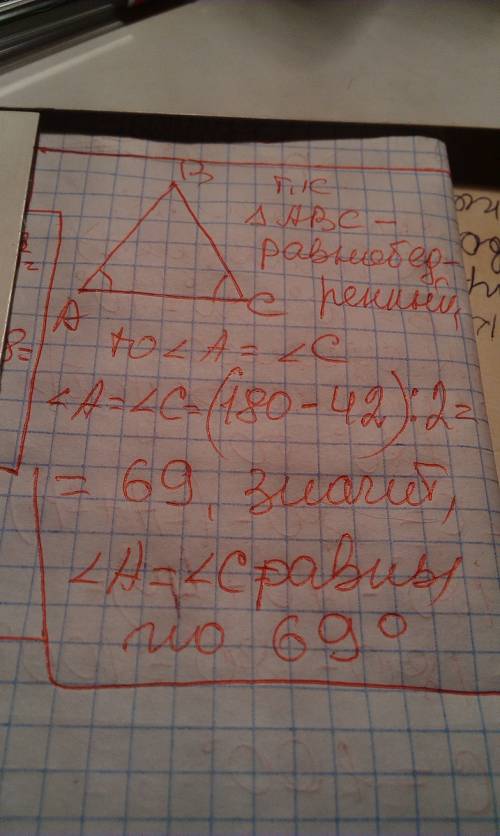 B
т.к
△ABC –
равнобед-
ренный,
A
C
то ∠A = ∠C
∠A = ∠C = (180 – 42) : 2 =
= 69, значит,
∠A = ∠C равны
по 69°